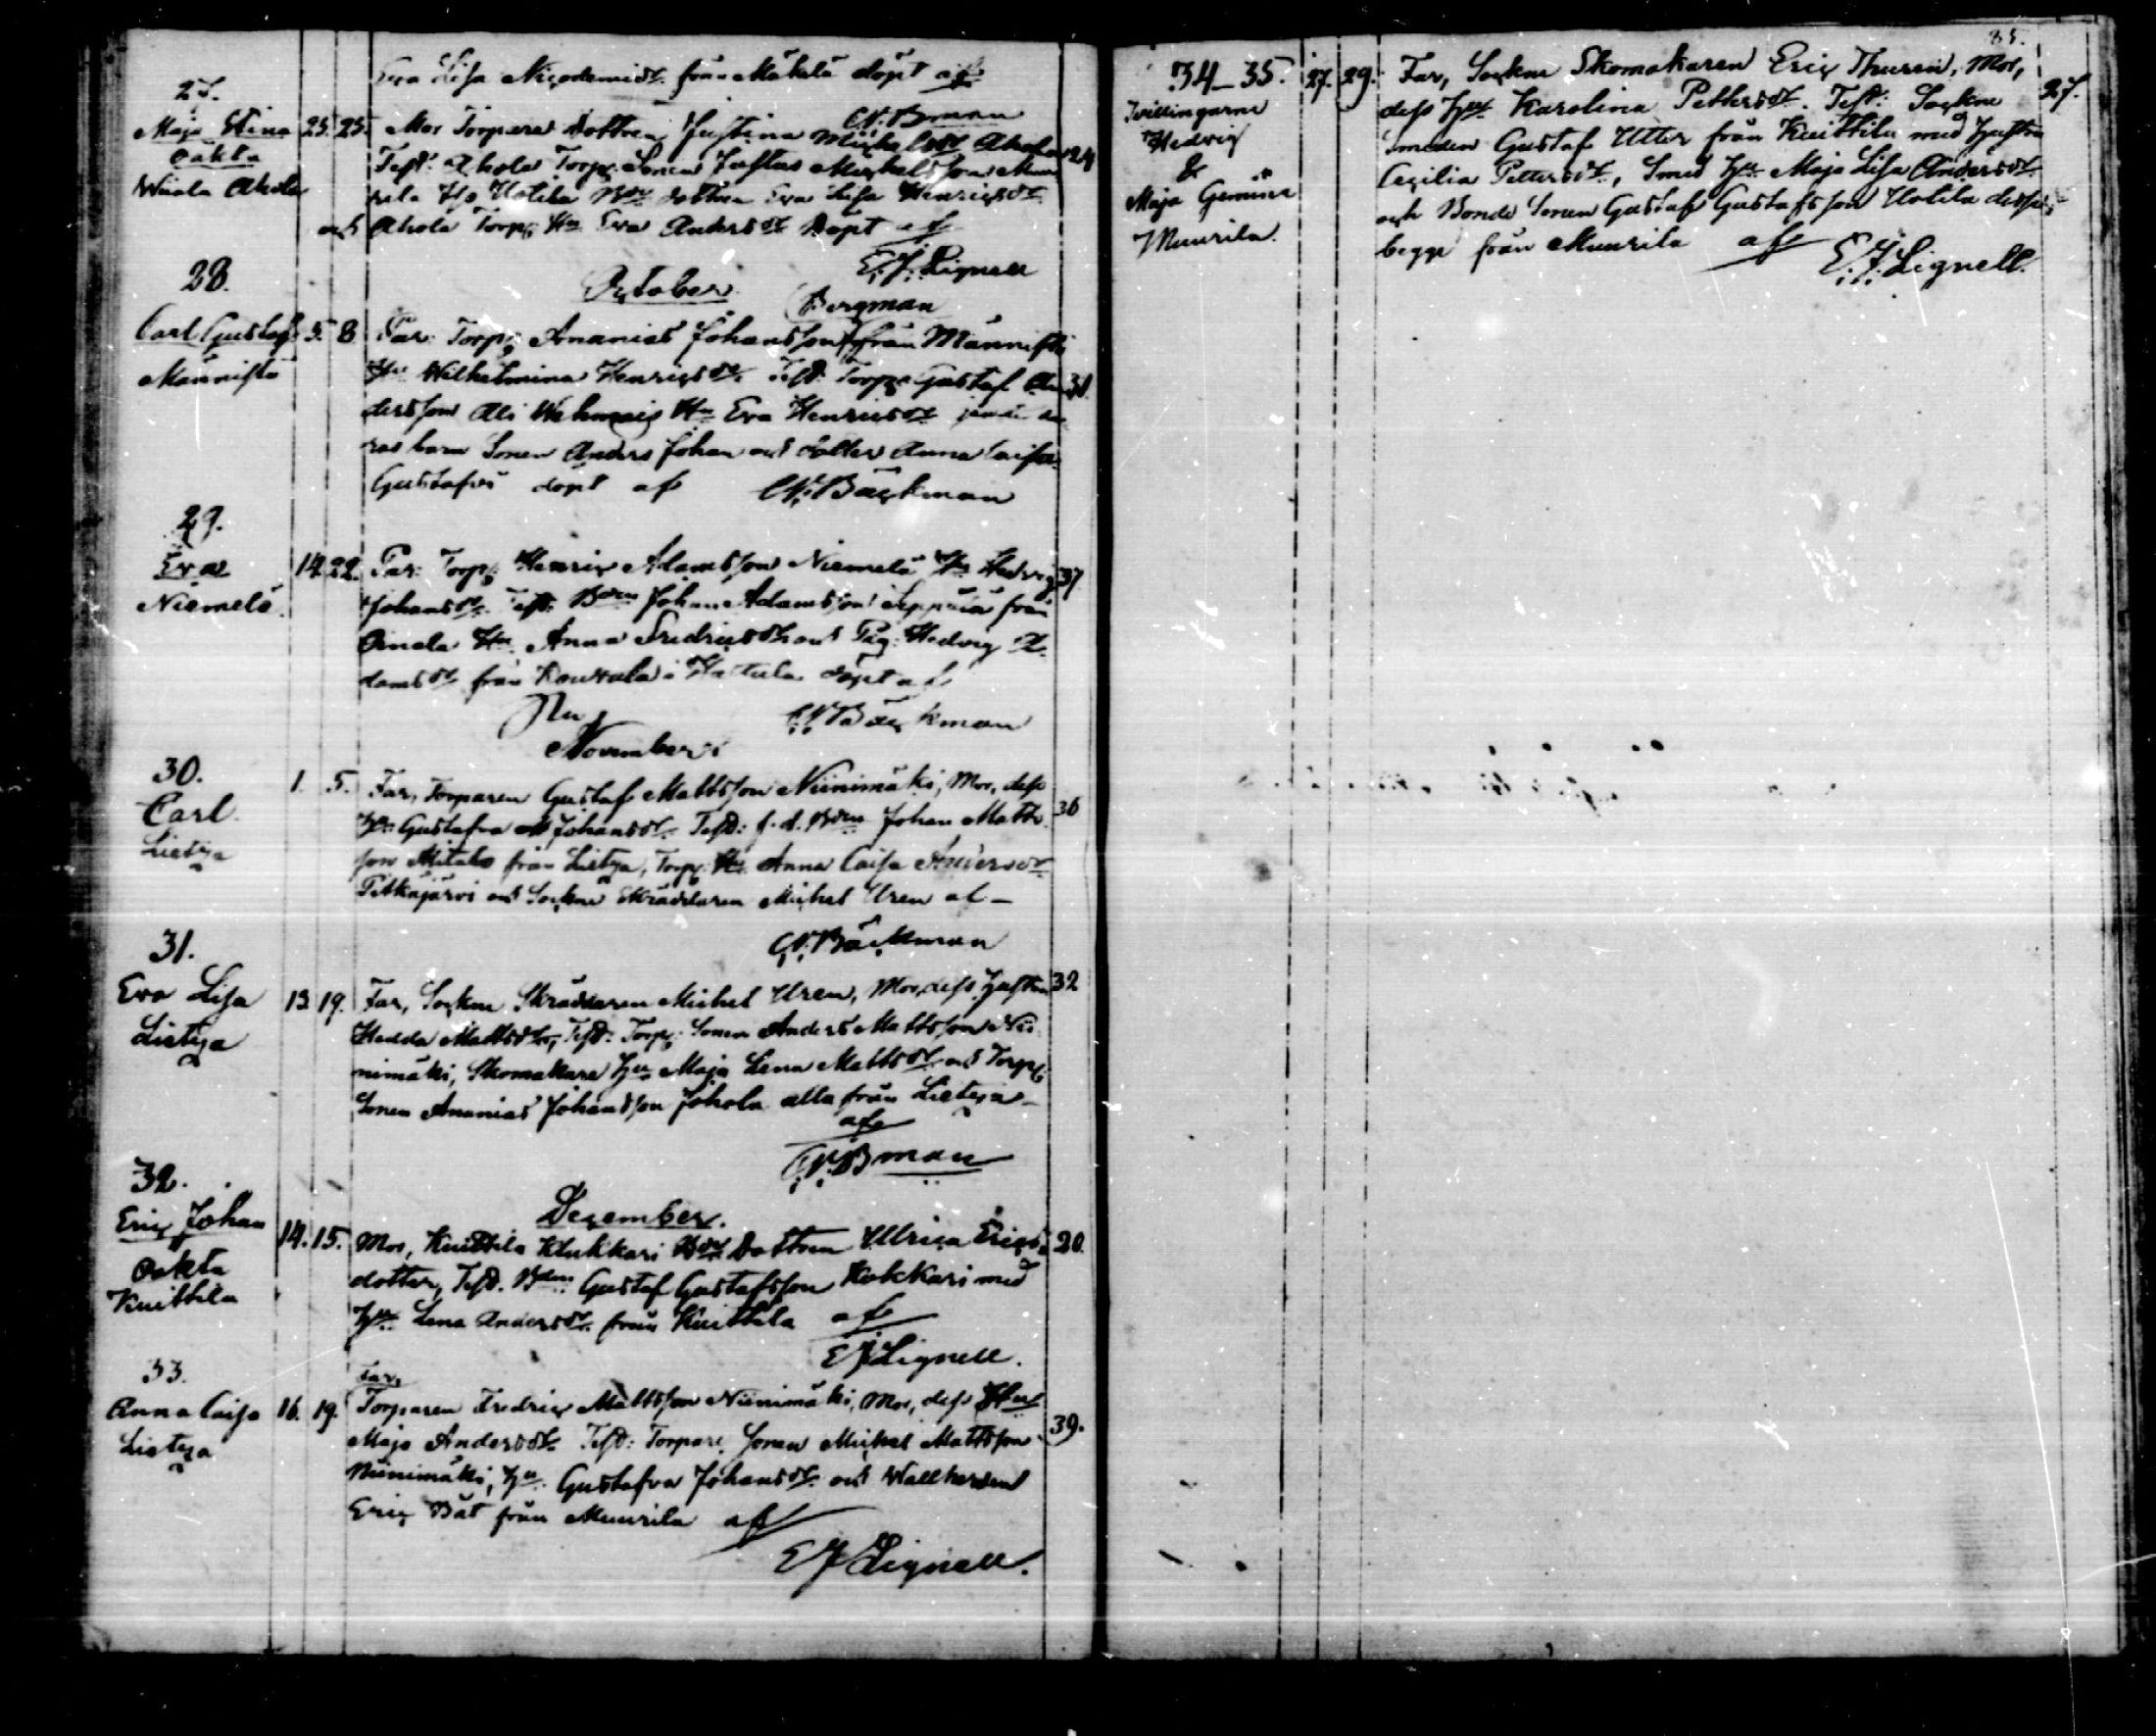 Eva Lisa Nicodemidr. från Mäkelä döpt af
C.N.Bman
27.
Maja Stina
oäkta
Wiala Ahola
25. 25. Mor Torpare dottren Justina Michelsdr Ahola 24
Test: Ahola Torp: Sonen Justus Michelsson Muu
rila Hotila Bde dottren Eva Lisa Henricsdr
och Ahola Torp: Hu Eva Andersdr Döpt af
E.J.Lignell
October
Bergman
28.
Carl Gustaf
Männistö
5. 8 Far: Torp: Ananias Johansson från Männistö
Hu Wilhelmina Henricsdr. Test: Torp: Gustaf An 31
dersson Ali Hu Eva Henricsdr
ras barn Sonen Anders Johan och dotter Anna Caisa
Gustafva döpt af C.N.Bäckman
29.
Eva
Niemelä.
14. 22. Far: Torp: Henric Adamsson Niemelä Hu Hedvig 37
Johansdr. Test: Bden Johan Adamsson Seppälä från
Hu Anna Fredricsdr och Pig: Hedvig A
damsdr från i Hattula döpt af
C.N.Bäckman
November
30.
Carl
Lietza
1. 5. Far, Torparen Gustaf Mattsson Niinimäki, Mor, dess 36
Hu Gustafva Johansdr. Test: f.d. Bden Johan Matts
son från Lietza, Torp: Hu Anna Caisa Andersdr
Pitkäjärvi och Sockne Skräddaren Michel Uren af
C.N.Bäckman
31.
Eva Lisa
Lietza
13 19. Far, Sockne Skräddaren Michel Uren, Mor, dess hustru 32
Hedda Mattsdr, Test: Torp: Sonen Anders Mattsson Nii
nimäki, Skomakare Hu Maja Lena Mattsdr och Torp:
Sonen Ananias Johansson Johola alla från Lietza
af
C.N.Bman
December.
32.
Eric Johan
Oäkta
Kuittila
14. 15. Mor, Kuittila Klukkari Bde Dottren Ulrica Erics 20.
dotter, Test. Bden Gustaf Gustafsson Kokkari med
Hu Lena Andersdr. från Kuittila af
E J Lignell.
33.
Anna Caisa
Lietza
Far,
16. 19. Torparen Fredric Mattsson Niinimäki, Mor, dess Hu
Maja Andersdr. Test: Torpare Sonen Michel Mattsson 39.
Niinimäki, Hu Gustafva Johansdr. och Wallherden
Eric Båt från Muurila af
E J Lignell.
34–35.
Tvillingarne
Hedvig
&
Maja Gemina
Muurila.
27. 29. Far, Sockne Skomakaren Eric Thurén, Mor, 27.
dess Hu Karolina Pettersdr. Test: Sockne
Smeden Gustaf Utter från Kuittila med hustru
Cecilia Pettersdr., Smed Hu Maja Lisa Andersdr.
och Bonde Sonen Gustaf Gustafsson Hotila desse
begge från Muurila af
E.J.Lignell.